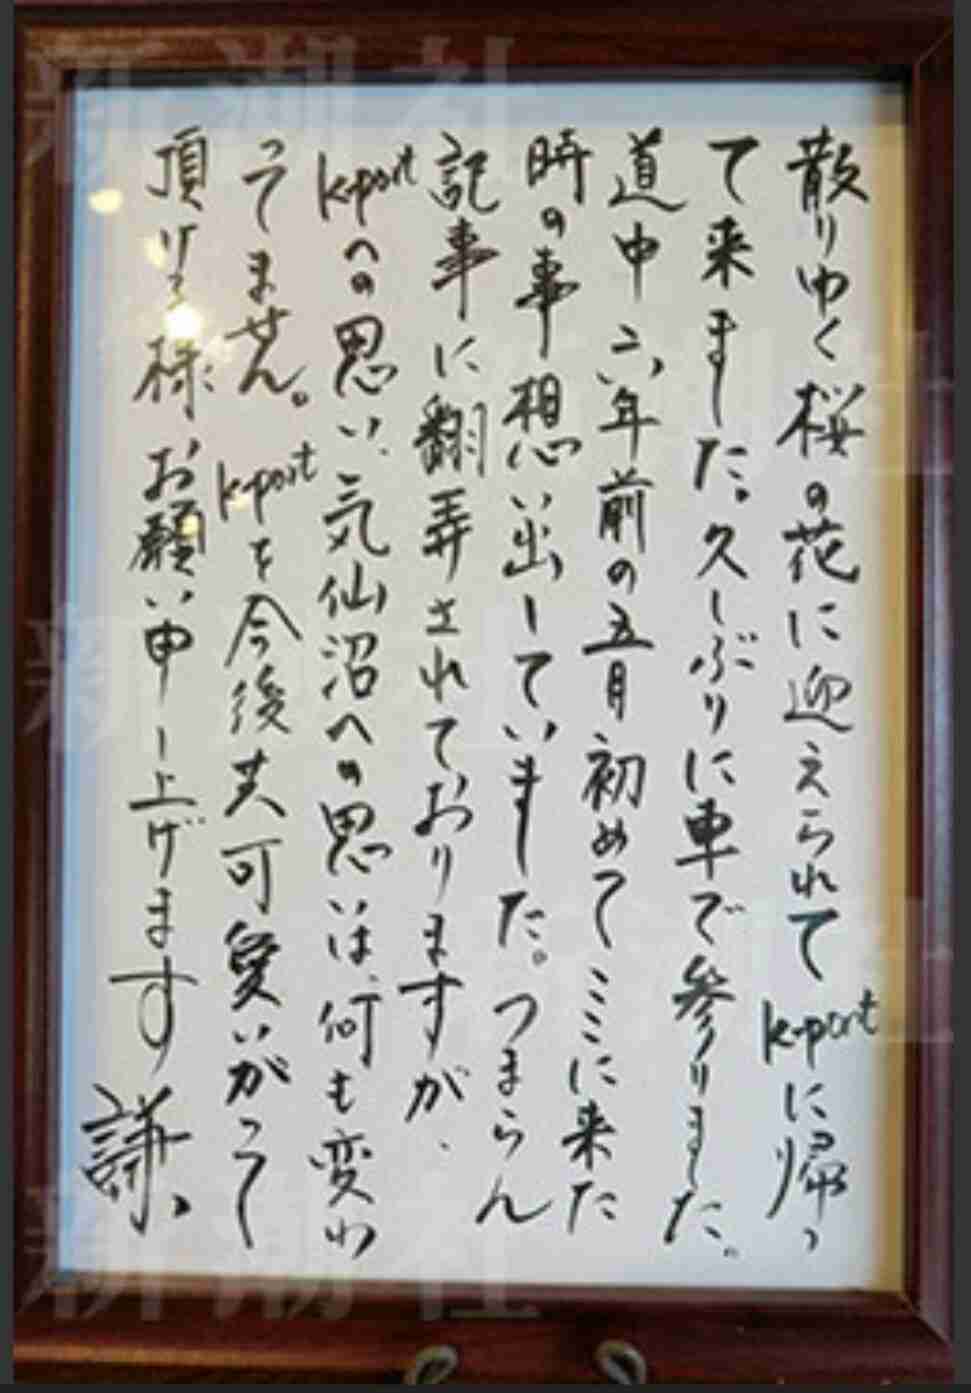 散りゆく桜の花に迎えられてk-portに帰っ
て来ました。久しぶりに車で参りました。
道中六年前の五月初めてココに来た
時の事想い出していました。つまらん
記事に翻弄されておりますが、
k-portへの思い、気仙沼への思いは、何も変わ
ってません。k-portを今後共可愛いがって
頂ける様お願い申し上げます
謙、
新潮社
新潮社
新潮社